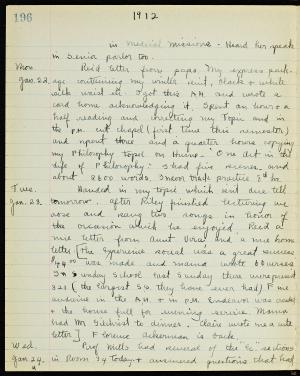 196
1912
in medical missions. Heard her speak
in senior parlor too.
Mon. Rec'd letter from papa. My express pack-
Jan. 22. age containing my white skirt, black & white
silk waist etc. I got this A.M. and wrote a
card home acknowledging it. Spent an hour & a
half reading and correcting my Topic and in
the P.M. cut chapel (first time this semester)
and spent three and a quarter hours copying
my Philosophy topic on Hume. One Act in the
life of Philosophy: I had five scenes and
about 2800 words. Indoor track practice 7th hr.
Tues. Handed in my topic which isn't due till
Jan. 23. tomorrow. After Riley finished lecturing we
rose and sang two songs in honor of
the occasion which he enjoyed. Rec'd a
nice letter from Aunt Vera and a nice home
letter [The Experience social was a great success
$44.00 was made and mama wrote verses
In Sunday School last Sunday there were present
321 (the largest S.S. they have ever had)
in the A.M. & in P.M. Endeavor was
the house full for evening service. Mama
had Mr. to dinner. Claire wrote me a nice
letter] Florence Ackerman is back.
Wed. Prof Mills had several of the "C" sections
Jan. 24. in Room 24 today & answered questions that had